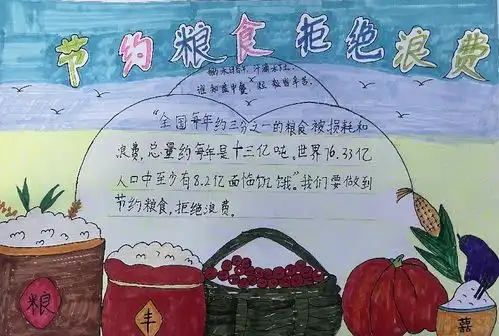 节约粮食拒绝浪费
锄禾日当午，汗滴禾下土。
谁知盘中餐，粒粒皆辛苦。
“全国每年约三分之一的粮食被损耗和
浪费，总量约每年是十三亿吨，世界76.33亿
人口中至少有8.2亿面临饥饿。”我们要做到
节约粮食，拒绝浪费。
粮
丰